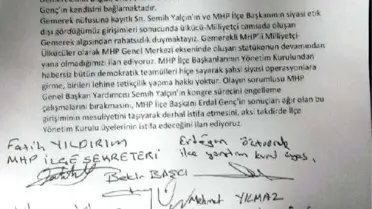 Genç'in kendisi bağlamaktadır.
Gemerek nüfusuna kayıtlı Sn. Semih Yalçın'ın ve MHP İlçe Başkanının siyasi etik
dışı gördüğümüz girişimleri sonucunda ülkücü-Milliyetçi camiada oluşan
Gemerek algısından rahatsızlık duymaktayız. Gemerekli MHP'li Milliyetçi
Ülkücüler olarak MHP Genel Merkezi ekseninde oluşan statükonun devamından
yana olmadığımızı ilan ediyoruz. MHP İlçe Başkanlarının Yönetim Kurulundan
habersiz bütün demokratik temamülleri hiçe sayarak şahsi siyasi operasyonlara
girme, birileri lehine tetikçilik yapma hakkı yoktur. Olayın sorumlusu MHP
Genel Başkan Yardımcısı Semih Yalçın'ın kongre sürecini engelleme
çalışmalarını bırakmasını, MHP İlçe Başkanı Erdal Genç'in sonuçları ağır olan bu
girişiminin mesuliyetini taşıyarak derhal istifa etmesini, aksi takdirde İlçe
Yönetim Kurulu üyelerinin istifa edeceğini ilan ediyoruz.
Fatih YILDIRIM
MHP İLÇE SEKRETERİ
Ertuğrul
ilçe yönetim kurul üyesi
Bekir BAŞCI
Mehmet YILMAZ